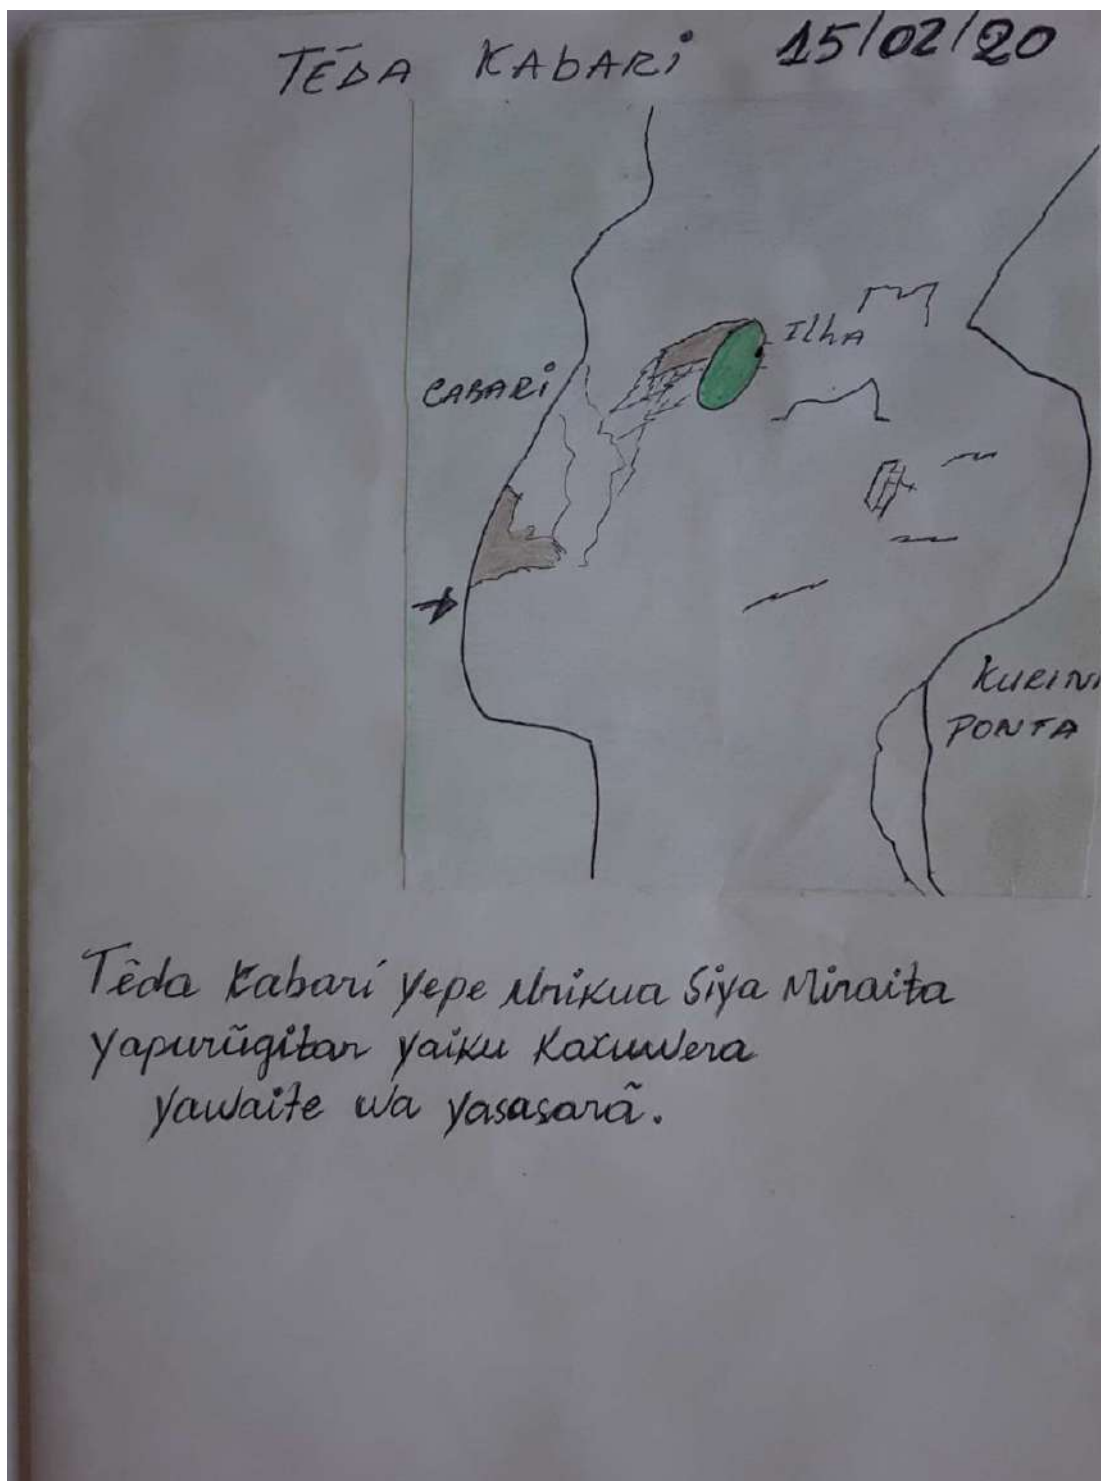 TẼDA KABARI 15/02/20
Ilha
CABARI
KURINI
PONTA
Tẽda Kabari yepe Urikua Siya Miraita
yapurũgitar yaiku Kaxuwera
yawaite wa yasasarã.